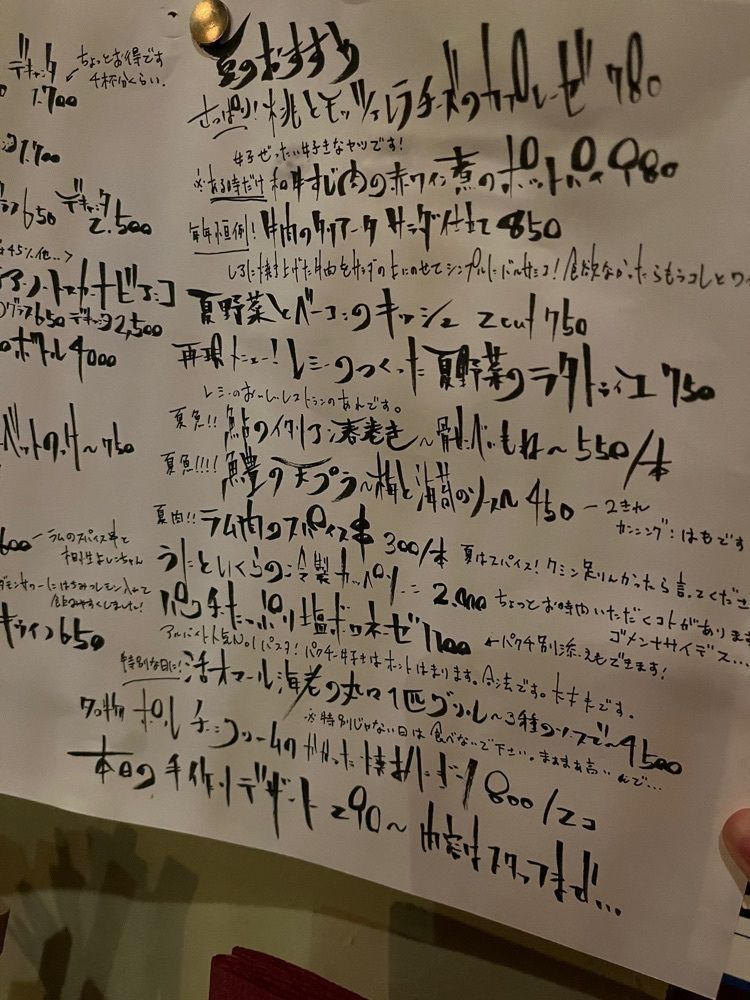 デキャンタ
1.700
ちょっとお得です
4杯分くらい.
1.700
650 デキャンタ
2.500
45%他...>
650 デキャンタ 2,500
ボトル 4000
750
600
ラムのスパイス串と
相性よしいちゃん
レモンサワーにはちみつレモン入れて
飲みやすくしました!
キウイン650
夏のおすすめ
さっぱり!桃とモッツァレラチーズのカプレーゼ 780
女子ぜったい好きなヤツです!
※ある時だけ 和牛すじ肉の赤ワイン煮のポットパイ 980
毎年恒例!牛肉のタリアータ サラダ仕立て 850
夏野菜とベーコンのキッシュ 2cut 750
再現メニュー!レミーのつくった夏野菜のラタトゥイユ 750
レミーのおいしいレストランのあれです。
夏魚!!鮎のイタリアン春巻き〜骨せんべいもね〜550/本
夏魚!!!!鱧の天プラ〜梅と海苔のソース〜 450 ー2きれ
カンニング:はもです
夏肉!!ラム肉のスパイス串 300/本 夏はスパイス!クミン足りんかったら言ってくださ
うにといくらの冷製カッペリーニ 2.000 ちょっとお時間いただくコトがあります
ゴメンナサイデス...
パクチーたっぷり塩ボロネーゼ 1100 ←パクチー別に添えもできます!
アルバイト人気No1パスタ!パクチー好きはホントはまります。合法です。大丈夫です。
特別な日に!活オマール海老の丸ロ1匹グリル〜3種のソースで〜4500
※特別じゃない日は食べないで下さい。まぁまぁ高いんで...
名物 ポルチーニクリームのかかった焼きハンバーグ 800/2コ
本日の手作りデザート 290〜 内容はスタッフまで...